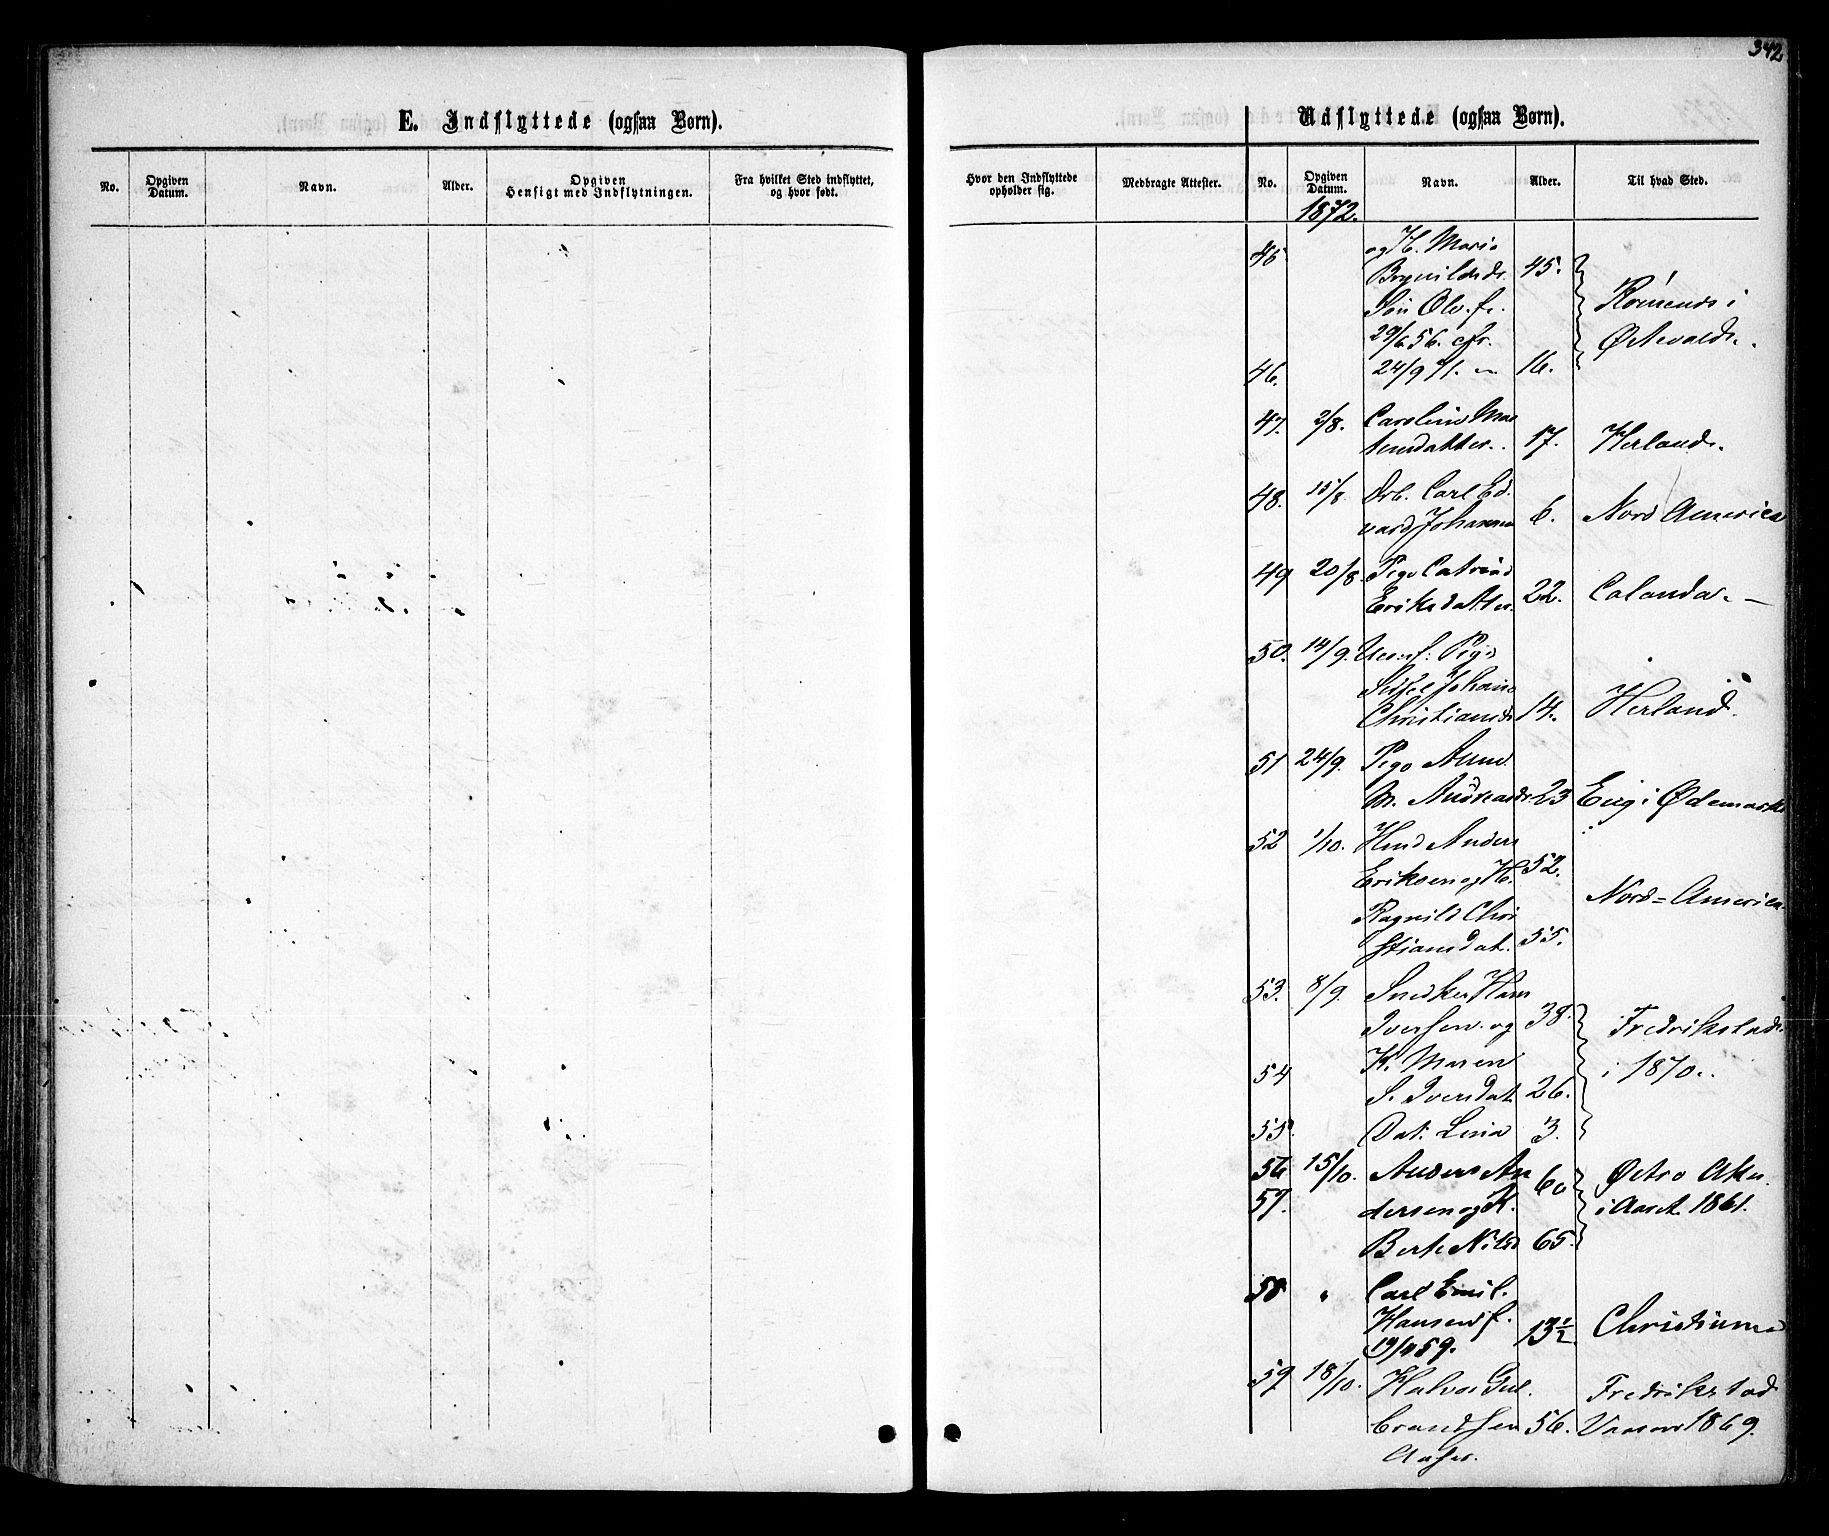 342
E. Indflyttede (ogsaa Børn).
Udflyttede (ogsaa Børn).
No. Opgiven Datum. Navn. Alder. Opgiven Hensigt med Indflytningen. Fra hvilket Sted indflyttet, og hvor født.
Hvor den Indflyttede opholder sig. Medbragte Attester. No. Opgiven Datum. Navn. Alder. Til hvad Sted.
1872.
45 og H. Maria
Brynildsdr. 45.
Søn Ole. f. Rømends i
29/6 56. cfr. Østevalds.
46. 24/9 71. 16.
47. 2/8. Caroline Mar
tensdatter. 17. Herland.
48. 15/8. Drb. Carl Ed.
vard Johansen 6. Nord America
49 20/8. Pige Catrine
Eriksdatter. 22. Calanda. —
50. 14/9. Uconf. Pige
Sidsel Johane
Christiansdr 14. Herland.
51 24/9. Pige Anne
M. Andreasdr. 23 Eng i Ødemark
52 1/10. Hmd Anders
Eriksen og H. 52.
Ragnild Chri Nord=America
stiansdat. 55.
53. 8/9. Snedker Hans
Iversen. og 38. Fredrikstad.
54 K. Maren i 1870..
S. Iversdat 26.
55. Dat. Lina 3.
56 15/10. Anders An 60 Østre Aker.
57. dersen og K. i Aaret 1861.
Berte Nilsd 65.
58 " Carl Emil.
Hansen f. 13½. Christiania
19/4 59.
59 18/10. Halvor Gul. Fredrikstad
brandsen 56. Vaaren 1869.